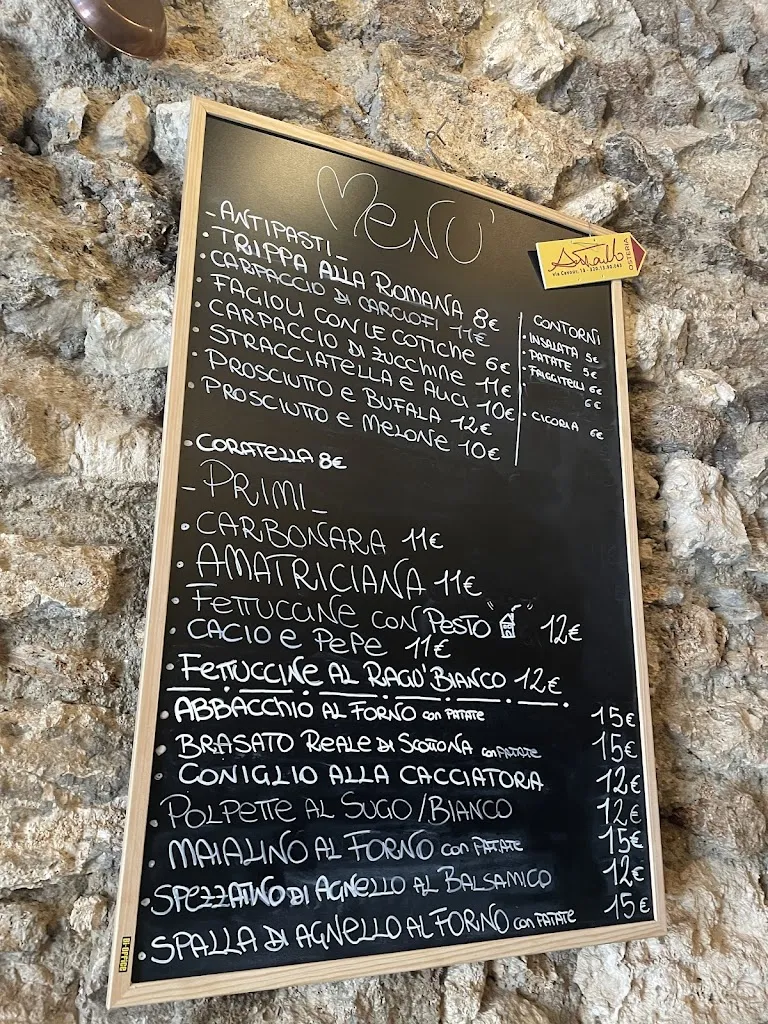 MENU'
- ANTIPASTI -
• TRIPPA ALLA ROMANA 8€
• CARPACCIO DI CARCIOFI 11€
• FAGIOLI CON LE COTICHE 6€
• CARPACCIO DI ZUCCHINE 11€
• STRACCIATELLA E ALICI 10€
• PROSCIUTTO E BUFALA 12€
• PROSCIUTTO E MELONE 10€
• CORATELLA 8€
CONTORNI
• INSALATA 5€
• PATATE 5€
• FRIGGITELLI 6€
6€
• CICORIA 6€
OSTERIA
- PRIMI -
• CARBONARA 11€
• AMATRICIANA 11€
• FETTUCCINE CON PESTO " " 12€
• CACIO E PEPE 11€
• FETTUCCINE AL RAGU' BIANCO 12€
• ABBACCHIO AL FORNO con PATATE 15€
• BRASATO REALE DI SCOTTONA con PATATE 15€
• CONIGLIO ALLA CACCIATORA 12€
• POLPETTE AL SUGO / BIANCO 12€
• MAIALINO AL FORNO con PATATE 15€
• SPEZZATINO DI AGNELLO AL BALSAMICO 12€
• SPALLA DI AGNELLO AL FORNO con PATATE 15€
BI-OFFICE